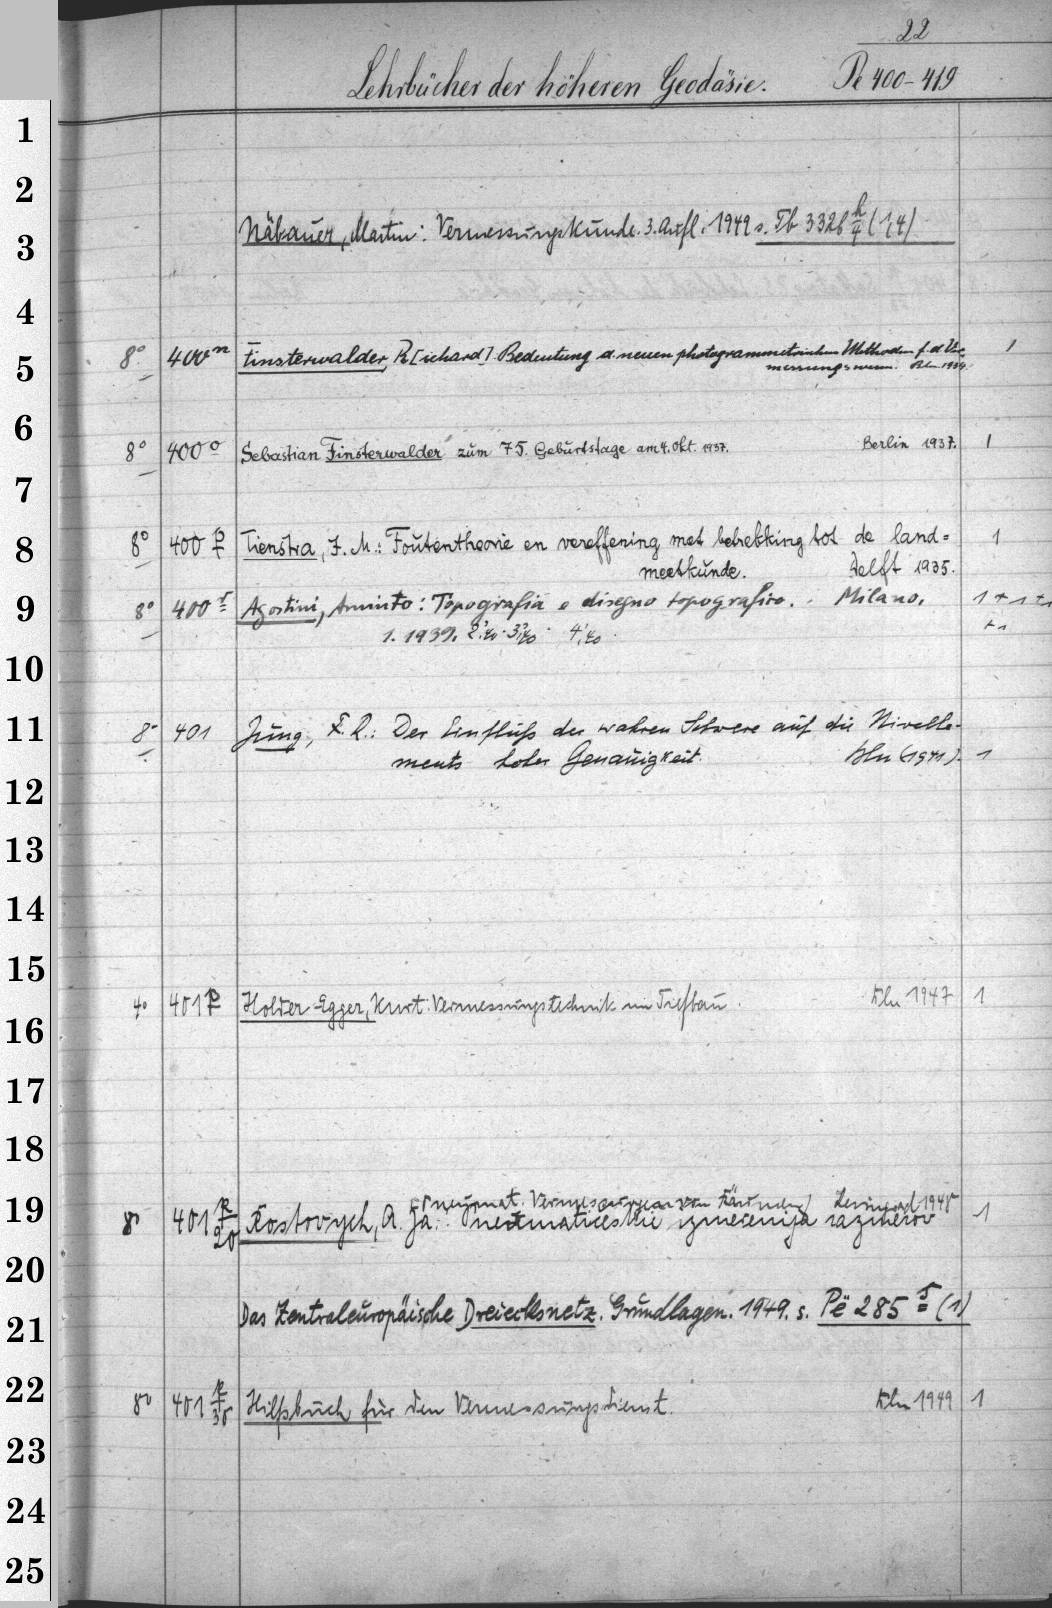 22
Lehrbücher der höheren Geodäsie. Pe 400-419
1
2
Näbauer, Martin: Vermessungskunde. 3. Aufl. 1949 s. Tb 332b k/4 (1,4)
3
4
8° 400 n Finsterwalder, R[ichard] Bedeutung d. neuen photogrammetrischen Methoden f. d. Ver- 1
5
messungswesen. Bln 1937.
6
8° 400 o Sebastian Finsterwalder zum 75. Geburtstage am 4. Okt. 1937. Berlin 1937. 1
7
8
8° 400 p Tienstra, J. M.: Foutentheorie en vereffening met betrekking tot de land= 1
meetkunde. Delft 1935.
9
8° 400 r Agostini, Aminto: Topografia e disegno topografico. Milano. 1 + 1 + 1
1. 1939. 2, 40. 3, 40. 4, 40. + 1
10
11
8° 401 Jung, F. R.: Der Einfluß der wahren Schwere auf die Nivelle-
ments hoher Genauigkeit. Bln (1941). 1
12
13
14
15
4° 401 p Holder-Egger, Kurt: Vermessungstechnik im Tiefbau. Bln 1947 1
16
17
18
19
Pneumat. Vermessungen von Leningrad 1948
8° 401 p/20 Kostovych, A. Ja.: Pneumatičeskie izmerenija razmerov 1
20
Das Zentraleuropäische Dreiecksnetz. Grundlagen. 1949. s. Pe 285 r (1)
21
22
8° 401 p/35 Hilfsbuch für den Vermessungsdienst. Bln 1949 1
23
24
25